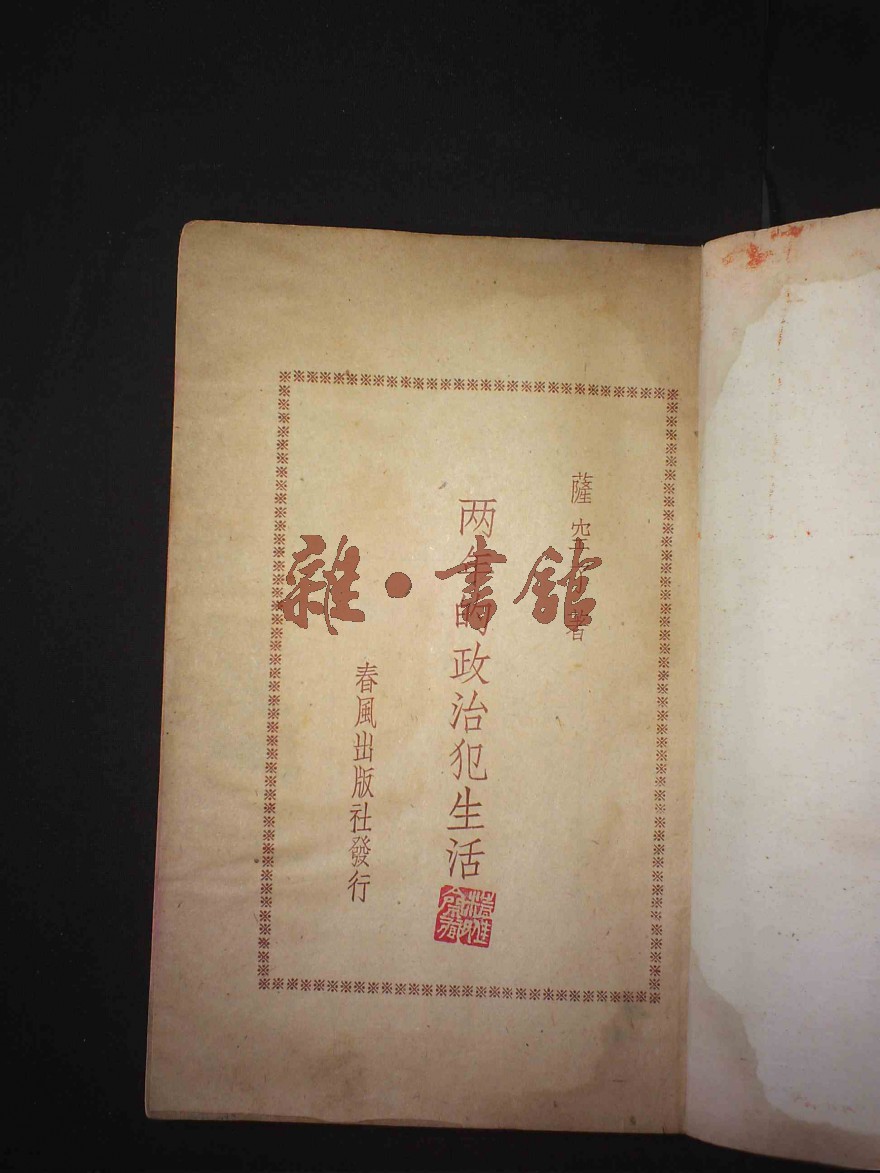 薩空了著
两年的政治犯生活
春風出版社發行
雜·書館